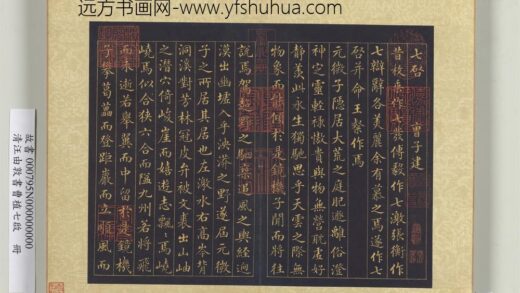 远方书画网-www.yfshuhua.com
七啓 曹子建
昔枚乘作七發傅毅作七激張衡作
七辯辭各美麗余有慕之焉遂作七
啓并命王粲作焉
玄微子隱居大荒之庭飛遯離俗澄
神定靈輕祿傲貴與物無營耽虛好
靜羨此永生獨馳思乎天雲之際無
物象而能傾於是鏡機子聞而將往
說焉駕超野之駟乘追風之輿經迥
漠出幽墟入乎泱漭之野遂屆玄微
子之所居其居也左激水右高岑背
洞溪對芳林冠皮弁被文裘出山岫
之潛穴倚峻崖而嬉遊志飄颻焉
嶢嶢焉似若狹六合而隘九州若將飛
而未逝若舉翼而中留於是鏡機
子攀葛藟而登距巖而立順風而
故書000795N000000000
清汪由敦書曹植七啟 冊